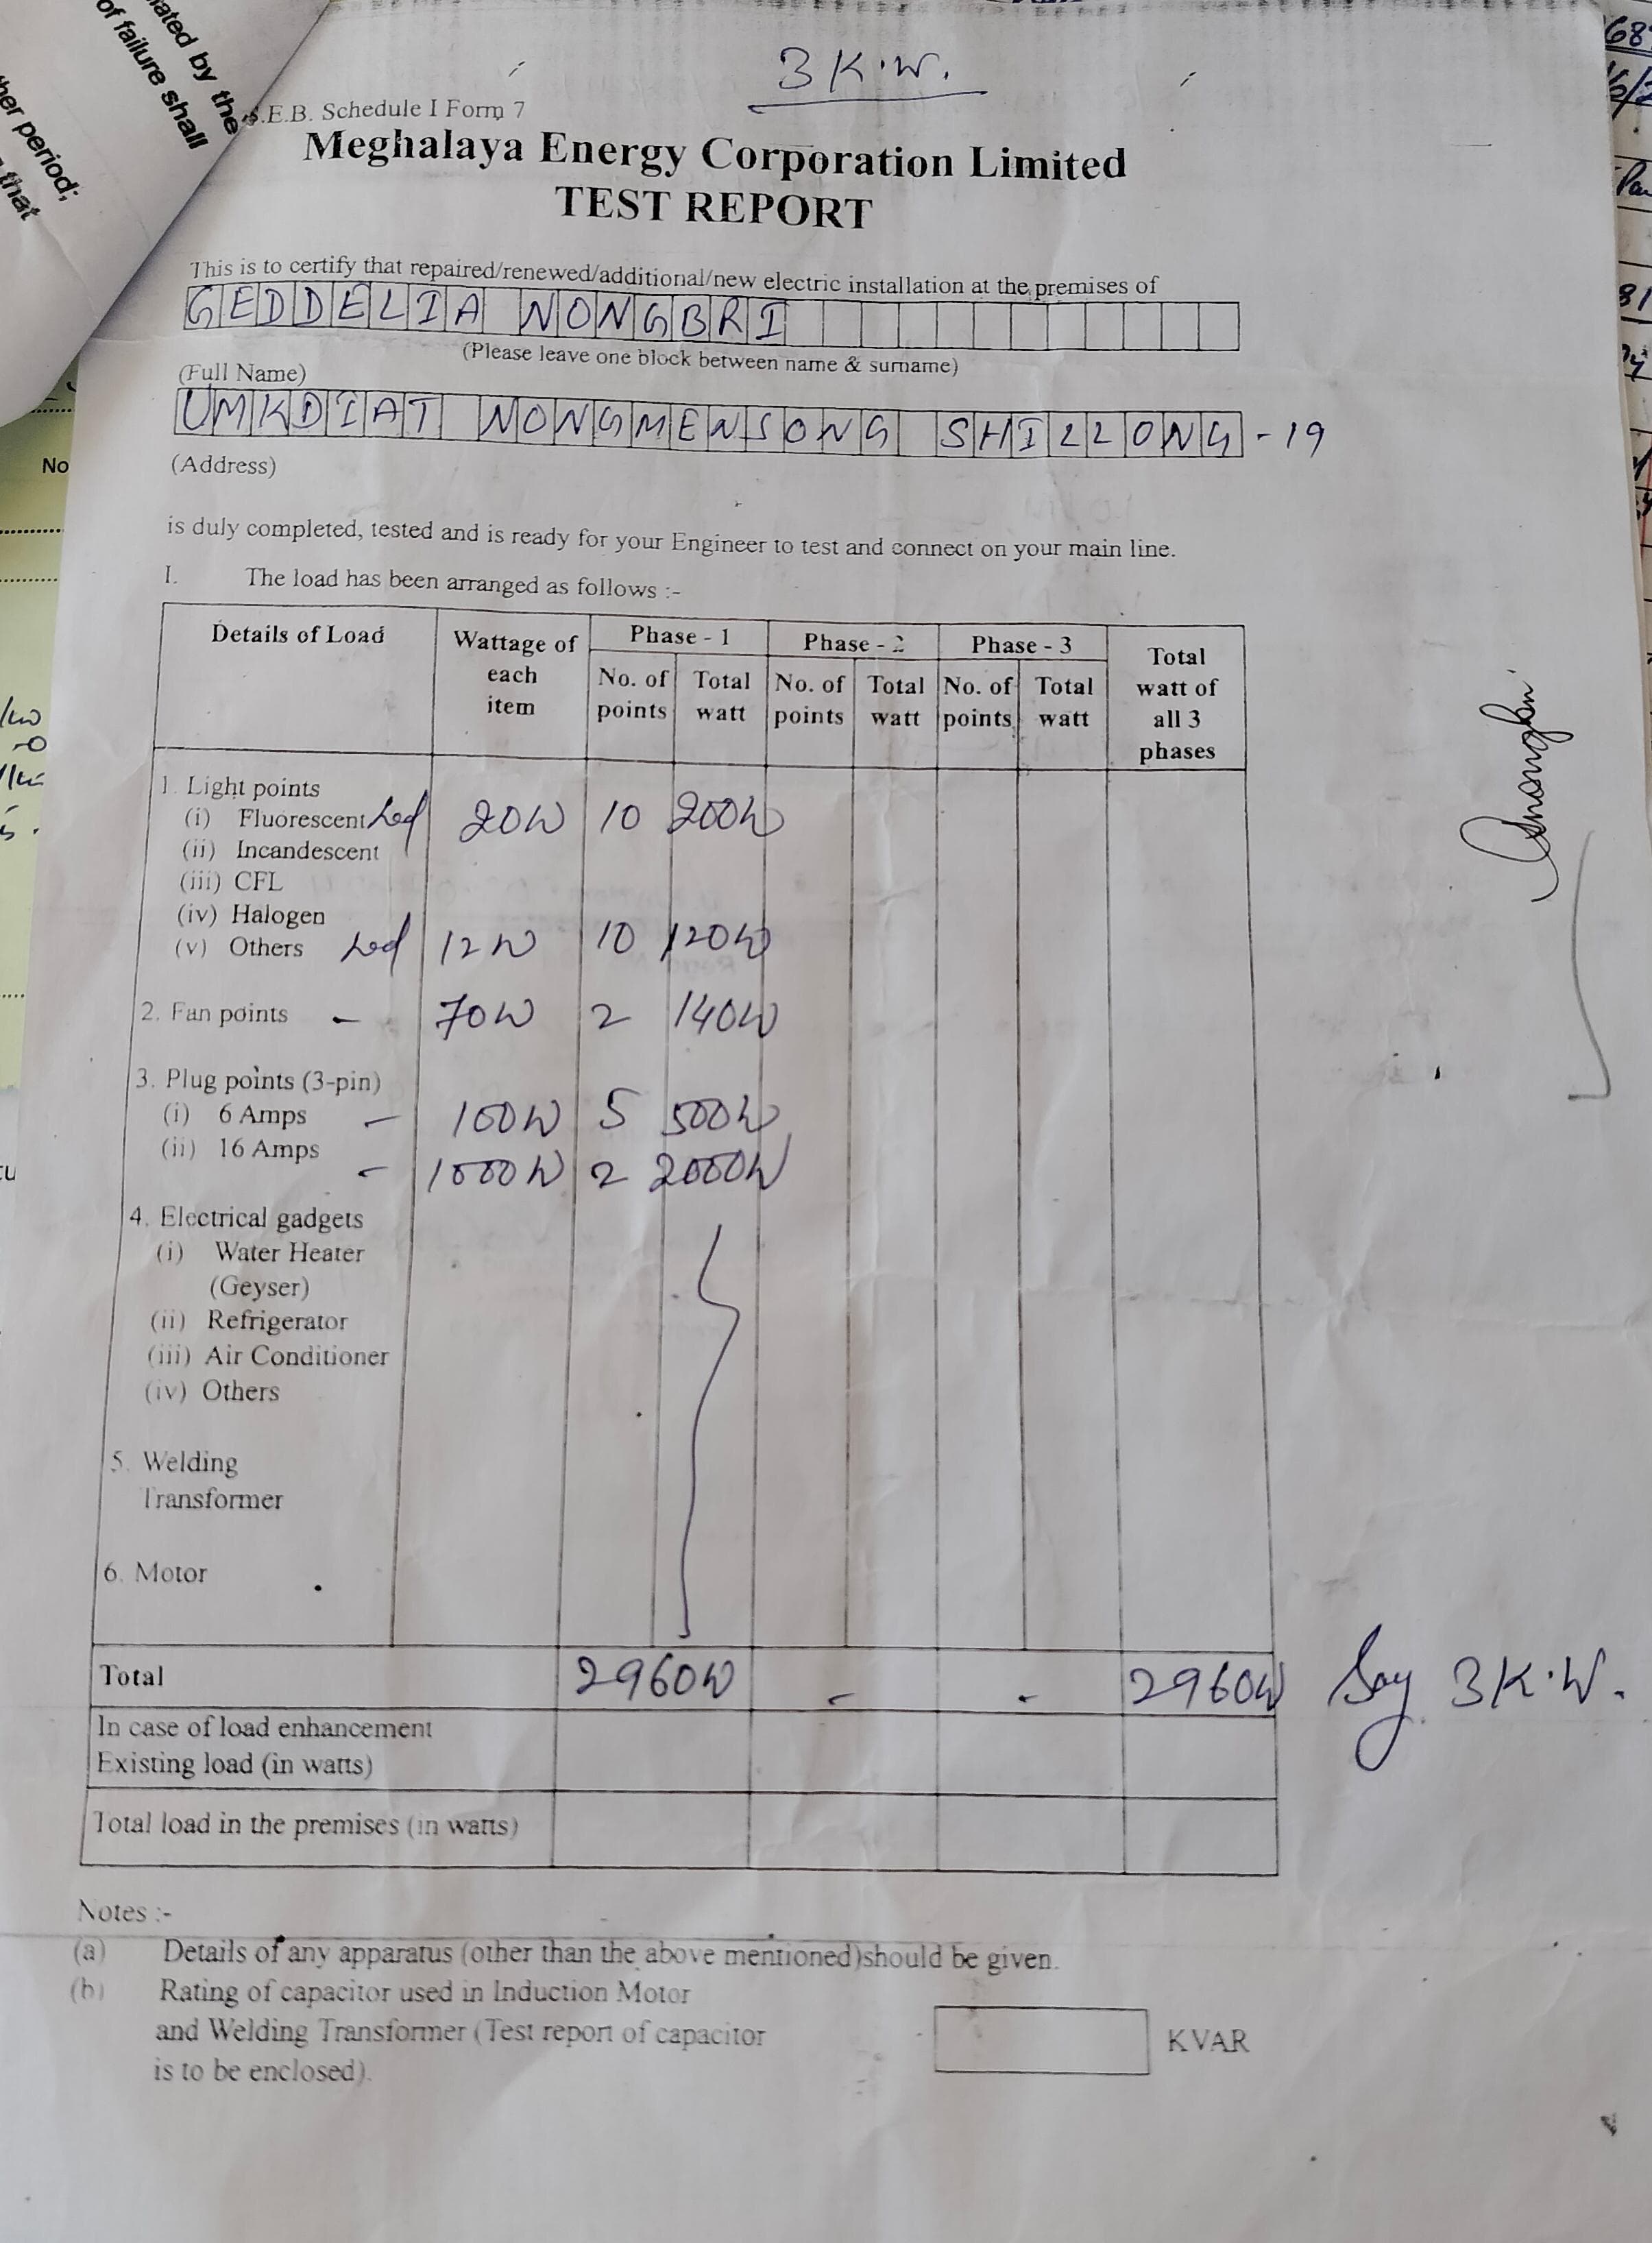 3 K.W.
S.E.B. Schedule I Form 7
Meghalaya Energy Corporation Limited
TEST REPORT
This is to certify that repaired/renewed/additional/new electric installation at the premises of
GEDDELIA NONGBRI
(Please leave one block between name & surname)
(Full Name)
UMKDIAT NONGMENSONG SHILLONG - 19
(Address)
is duly completed, tested and is ready for your Engineer to test and connect on your main line.
I. The load has been arranged as follows :-
Details of Load Wattage of each item Phase - 1 Phase - 2 Phase - 3 Total watt of all 3 phases
No. of points Total watt No. of points Total watt No. of points Total watt
1. Light points
(i) Fluorescent Led 20W 10 200W
(ii) Incandescent
(iii) CFL
(iv) Halogen
(v) Others Led 12W 10 120W
2. Fan points - 70W 2 140W
3. Plug points (3-pin)
(i) 6 Amps - 100W 5 500W
(ii) 16 Amps - 1000W 2 2000W
4. Electrical gadgets
(i) Water Heater
(Geyser)
(ii) Refrigerator
(iii) Air Conditioner
(iv) Others
5. Welding
Transformer
6. Motor
Total 2960W - - 2960W Say 3K.W.
In case of load enhancement
Existing load (in watts)
Total load in the premises (in watts)
Notes :-
(a) Details of any apparatus (other than the above mentioned)should be given.
(b) Rating of capacitor used in Induction Motor
and Welding Transformer (Test report of capacitor KVAR
is to be enclosed).
ated by the
of failure shall
her period;
that
No